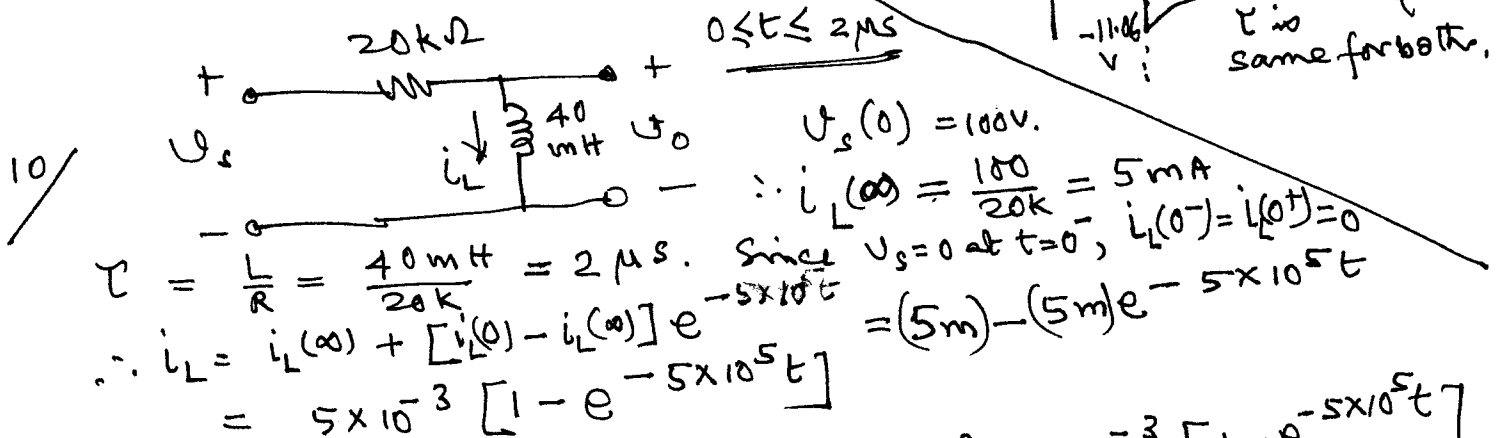 20kΩ
0≤t≤2μs
-11.06
V
τ is
same for both.
+
+
40
mH
10/
v_s
i_L
v_o
v_s(0) = 100V.
−
−
∴ i_L(∞) = 100/20K = 5mA
τ = L/R = 40mH/20K = 2μs. Since v_s=0 at t=0⁻, i_L(0⁻)=i_L(0⁺)=0
∴ i_L = i_L(∞) + [i_L(0) − i_L(∞)] e^−5×10⁵t = (5m)−(5m)e^−5×10⁵t
= 5×10^-3 [1 − e^−5×10⁵t]
-3
-5×10⁵t]